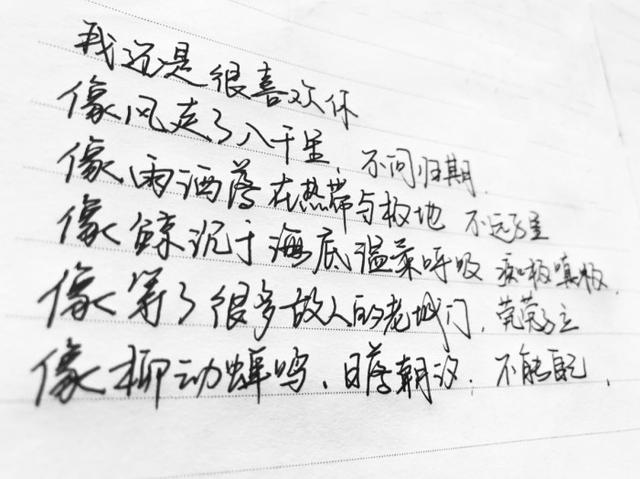 我还是很喜欢你
像风走了八千里,不问归期.
像雨洒落在热带与极地 不远万里
像鲸沉于海底温柔呼吸 痴极嗔极.
像等了很多故人的老城门,茕茕孑立
像柳动蝉鸣,日落潮汐.不能自已.